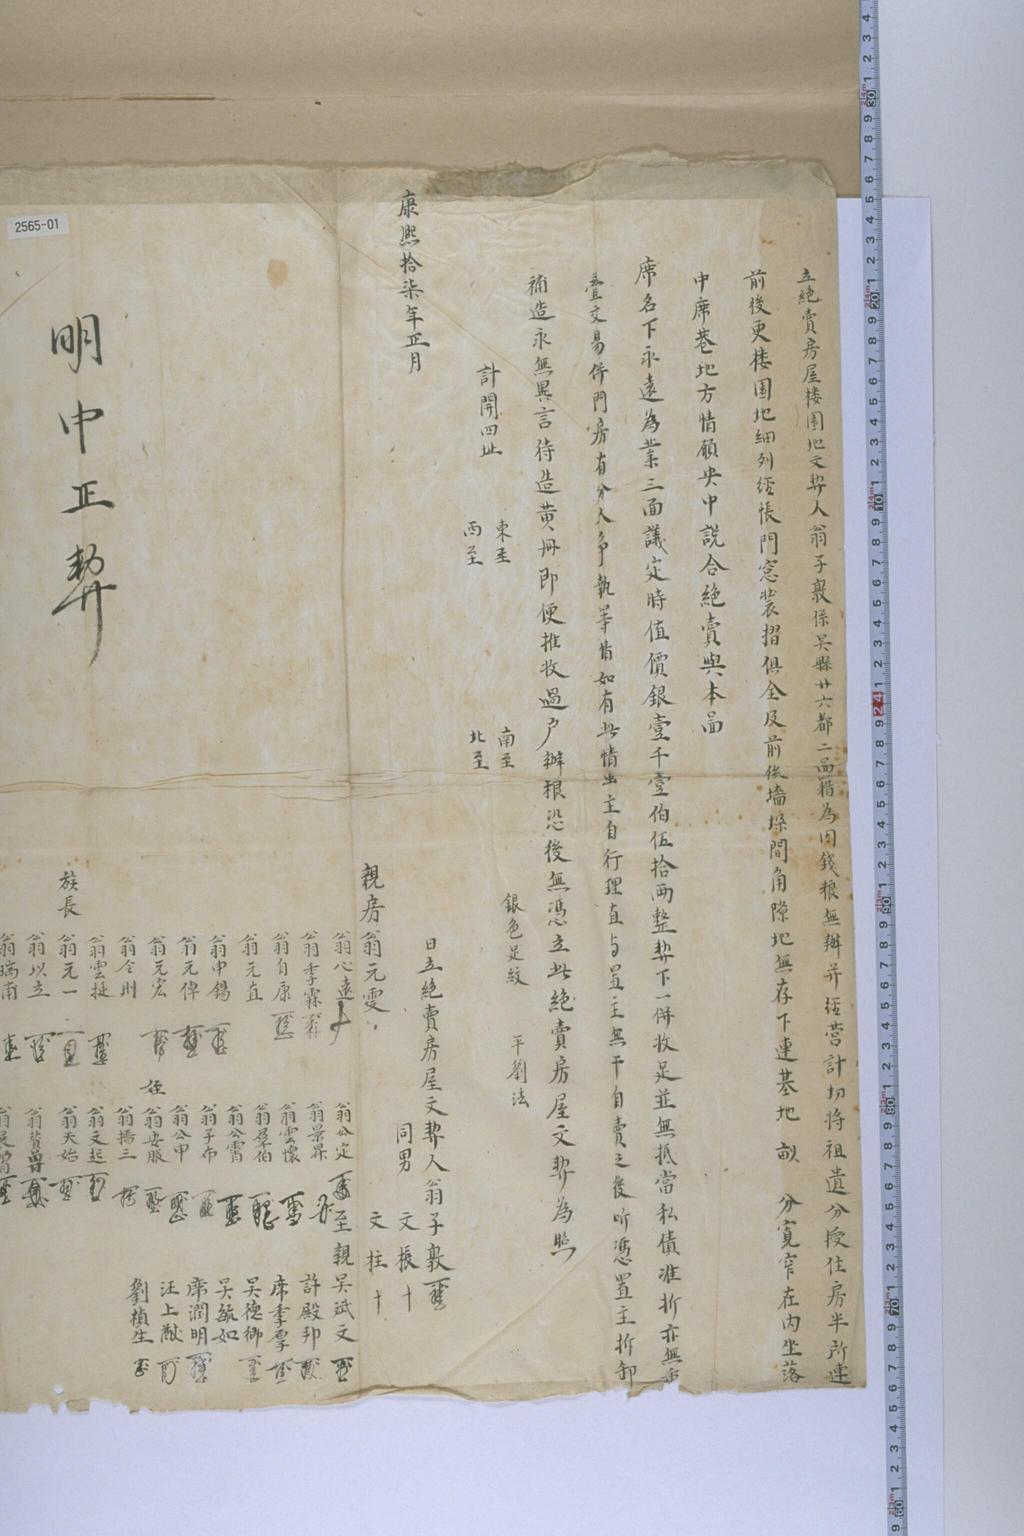 立絶賣房屋楼園地文契人翁子敫係吳縣廿六都二啚籍為因錢粮無辦并經營計切將祖遺分授住房半所連
前後更楼園地細列經帳門窓装摺俱全及前後墻垛間角隙地無存下連基地 畝 分寬窄在内坐落
中席巷地方情願央中説合絶賣與本啚
席名下永遠為業三面議定時值價銀壹千壹伯伍拾両整契下一併收足並無抵當私債准折亦無
叠交易併門房有分人争執等情如有此情出主自行理直与置主無干自賣之後听凴置主拆卸
補造永無異言待造黄冊即便推收過户辦粮恐後無憑立此絶賣房屋文契為照
銀色足紋 平劉法
計開四址
東至 南至
西至 北至
康熙拾柒年正月
日立絶賣房屋文契人翁子敫
同男 文振 十
文柱 十
親房 翁元雯
翁心遠 翁公定 至親 吴斌文
翁季霖 翁景昇 許殿邦
翁自康 翁雲懐 席季
翁元直 翁羣伯 吴德御
翁申錫 翁公霄 吴毓如
翁元倬 翁子布 席潤明
翁元宏 姪 翁公申 汪上猷
翁令則 翁安服 劉楨生
翁雲挺 翁搢三
族長 翁元一 翁文起
翁以立 翁天始
翁瑞甫
明中正契
2565-01